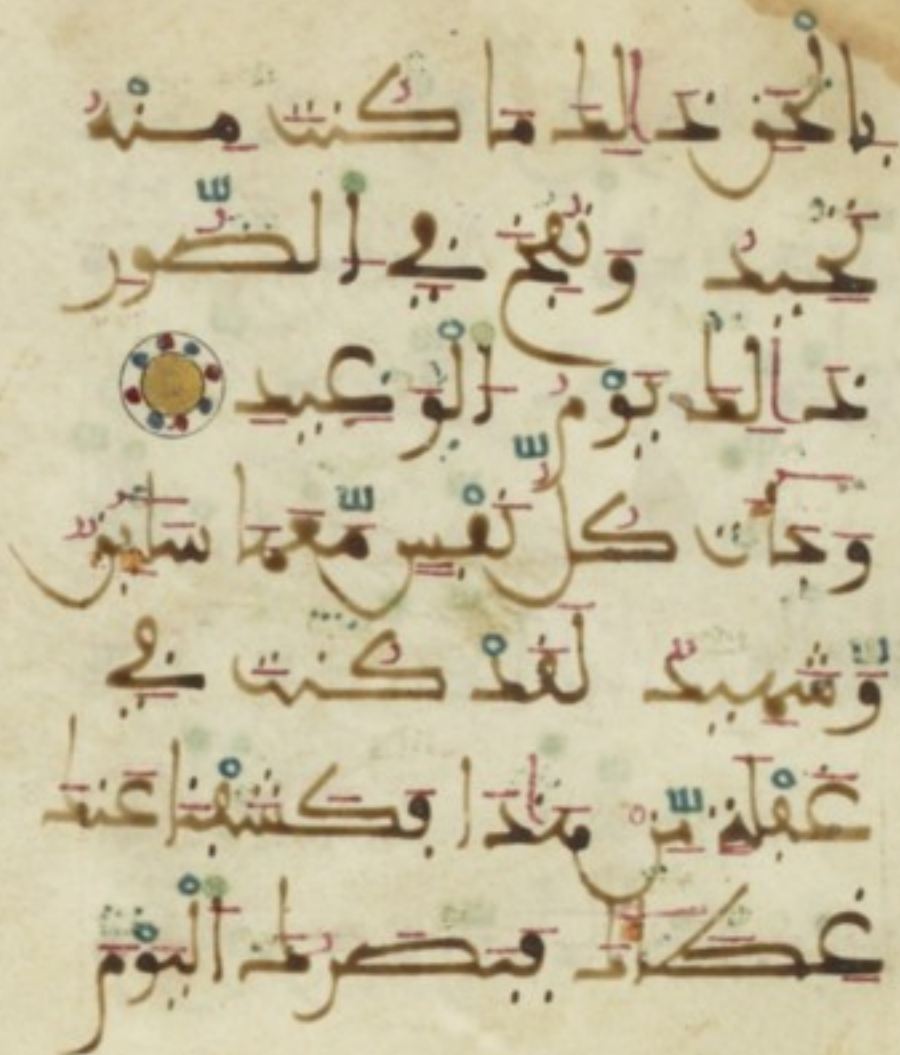 بِالْحَقِّ ذَٰلِكَ مَا كُنتَ مِنْهُ
تَحِيدُ وَنُفِخَ فِي الصُّورِ
ذَٰلِكَ يَوْمُ الْوَعِيدِ
وَجَآءَتْ كُلُّ نَفْسٍ مَّعَهَا سَآئِقٌ
وَّشَهِيدٌ لَقَدْ كُنتَ فِي
غَفْلَةٍ مِّنْ هَٰذَا فَكَشَفْنَا عَنكَ
غِطَآءَكَ فَبَصَرُكَ الْيَوْمَ